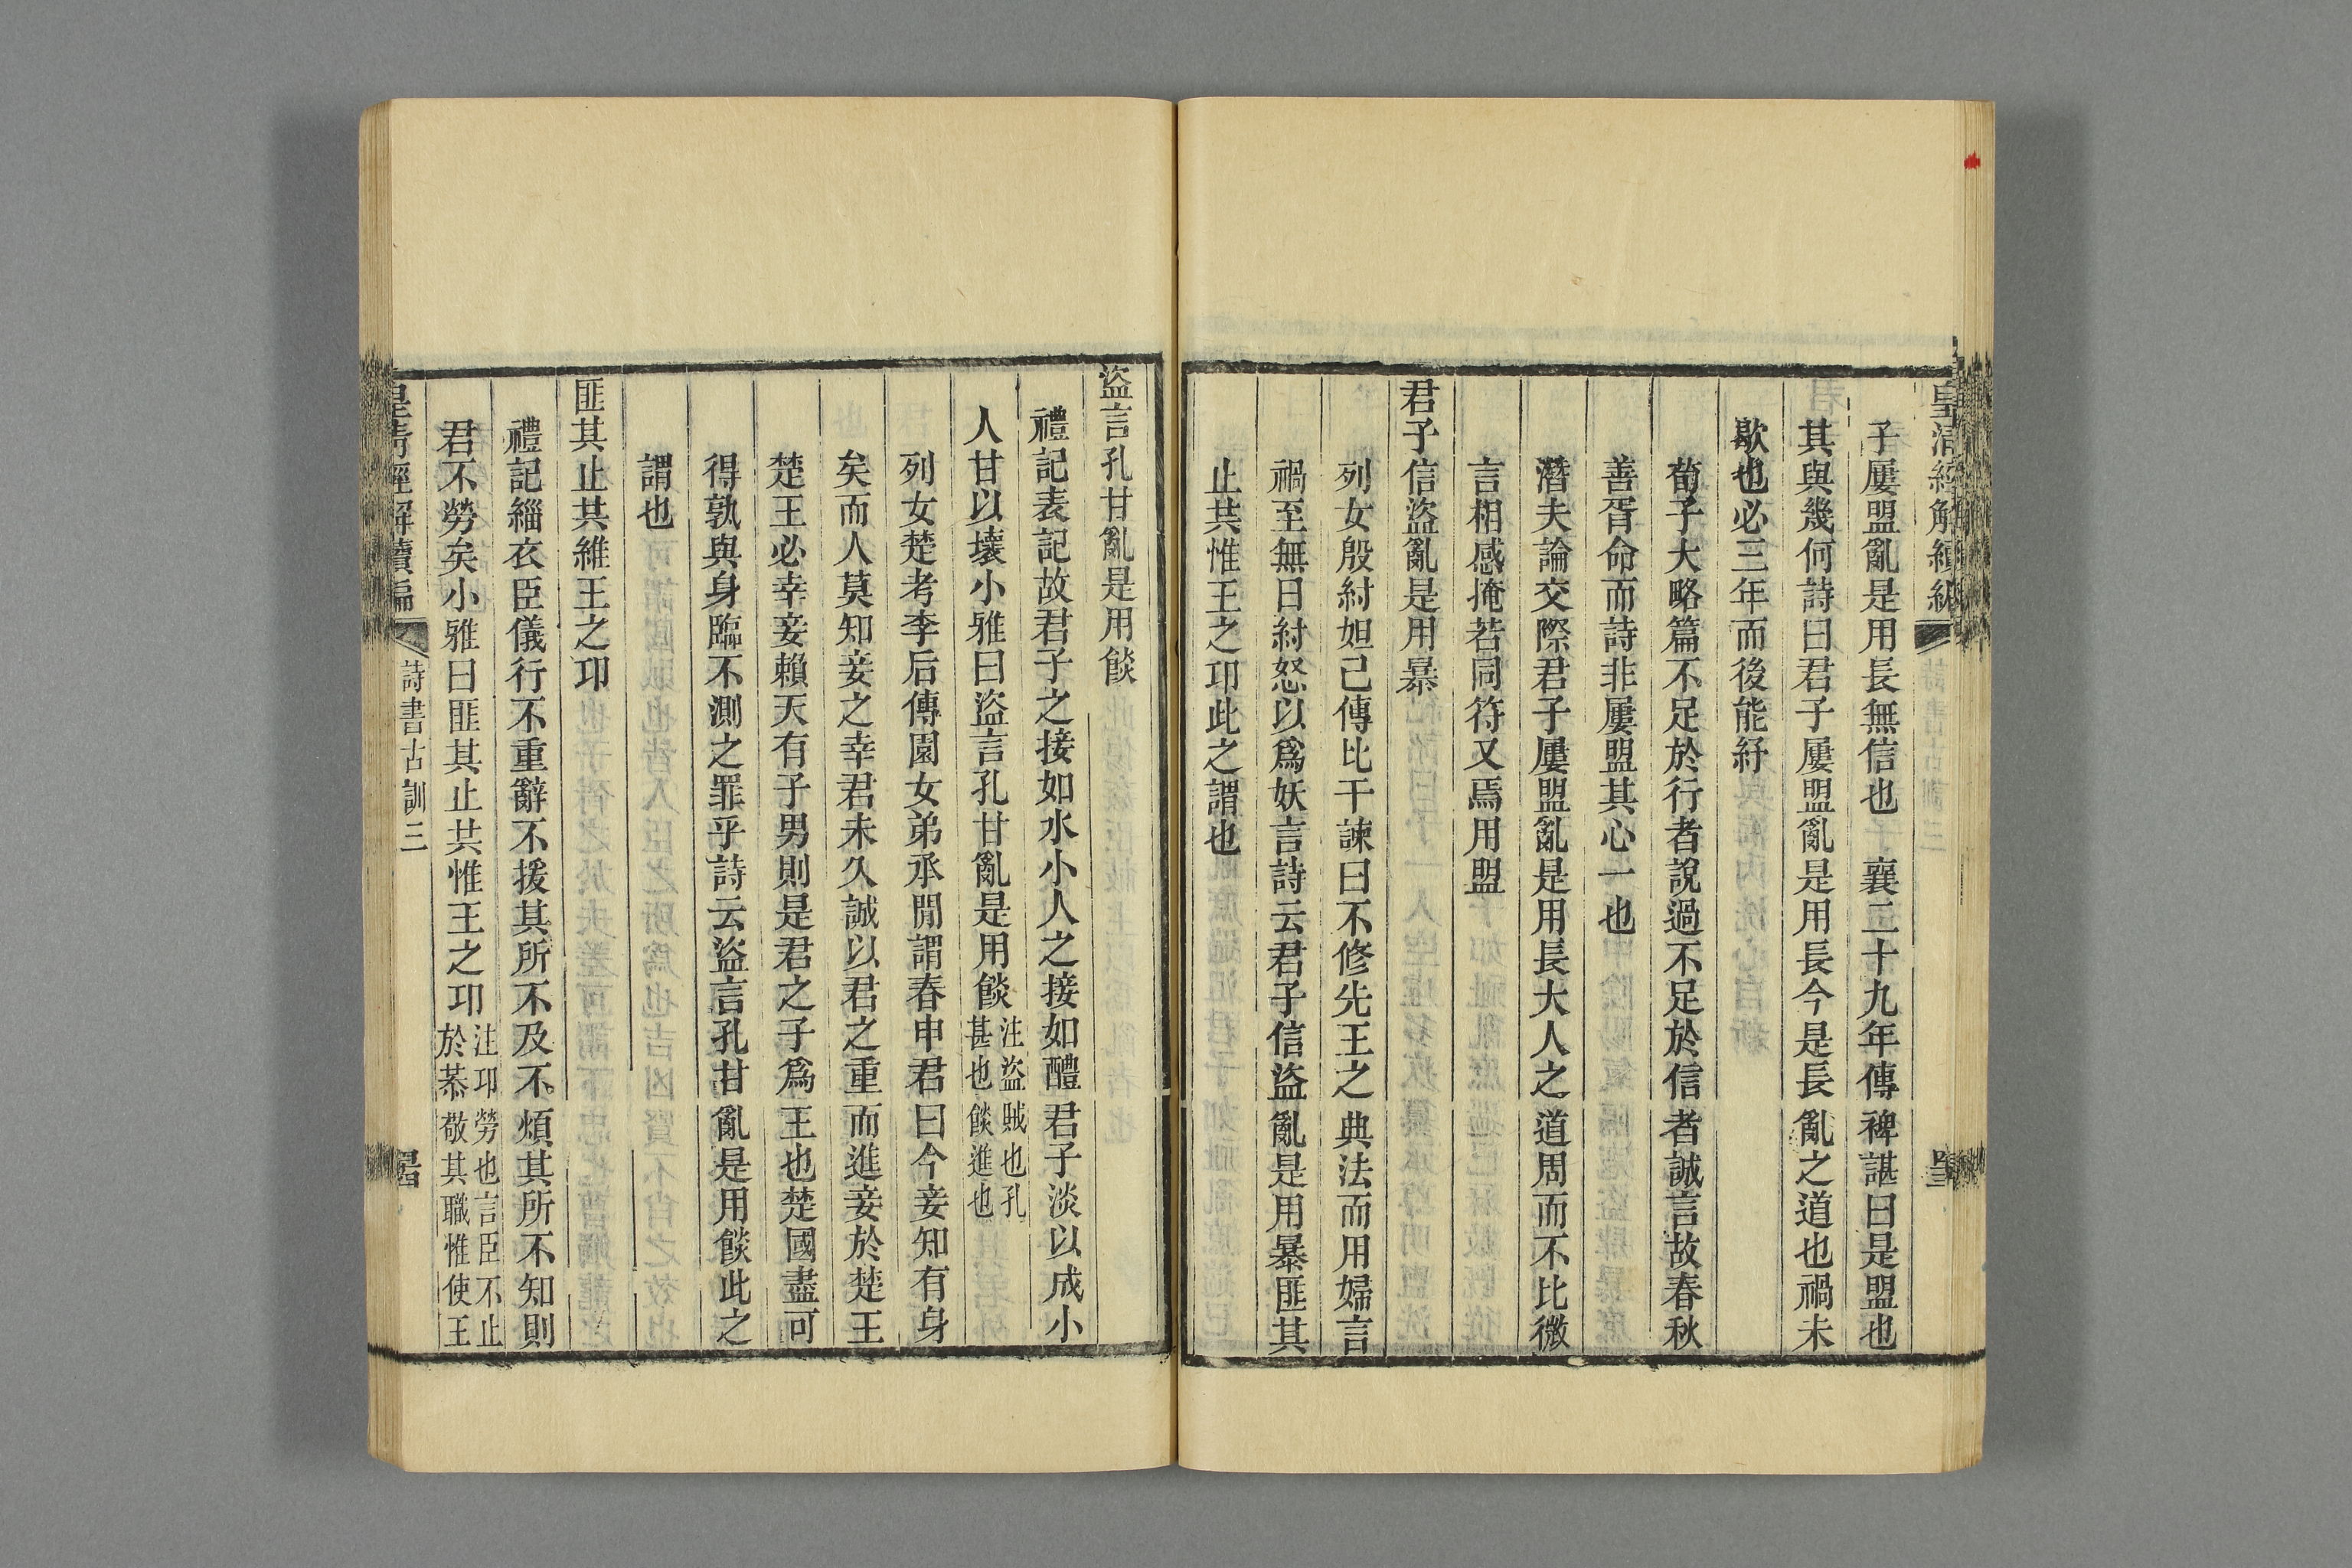 皇清經解續編
子屢盟亂是用長無信也　襄二十九年傳裨諶曰是盟也
其與幾何詩曰君子屢盟亂是用長今是長亂之道也禍未
歇也必三年而後能紓
荀子大略篇不足於行者說過不足於信者誠言故春秋
善胥命而詩非屢盟其心一也
潛夫論交際君子屢盟亂是用長大人之道周而不比微
言相感掩若同符又焉用盟
君子信盜亂是用暴
列女殷紂妲己傳比干諫曰不修先王之典法而用婦言
禍至無日紂怒以爲妖言詩云君子信盜亂是用暴匪其
止共惟王之邛此之謂也
盜言孔甘亂是用餤
禮記表記故君子之接如水小人之接如醴君子淡以成小
人甘以壞小雅曰盜言孔甘亂是用餤注盜賊也孔甚也餤進也
列女楚考李后傳園女弟承閒謂春申君曰今妾知有身
矣而人莫知妾之幸君未久誠以君之重而進妾於楚王
楚王必幸妾賴天有子男則是君之子爲王也楚國盡可
得孰與身臨不測之罪乎詩云盜言孔甘亂是用餤此之
謂也
匪其止共維王之邛
禮記緇衣臣儀行不重辭不援其所不及不煩其所不知則
君不勞矣小雅曰匪其止共惟王之邛注邛勞也言臣不止於恭敬其職惟使王
皇清經解續編　詩書古訓三